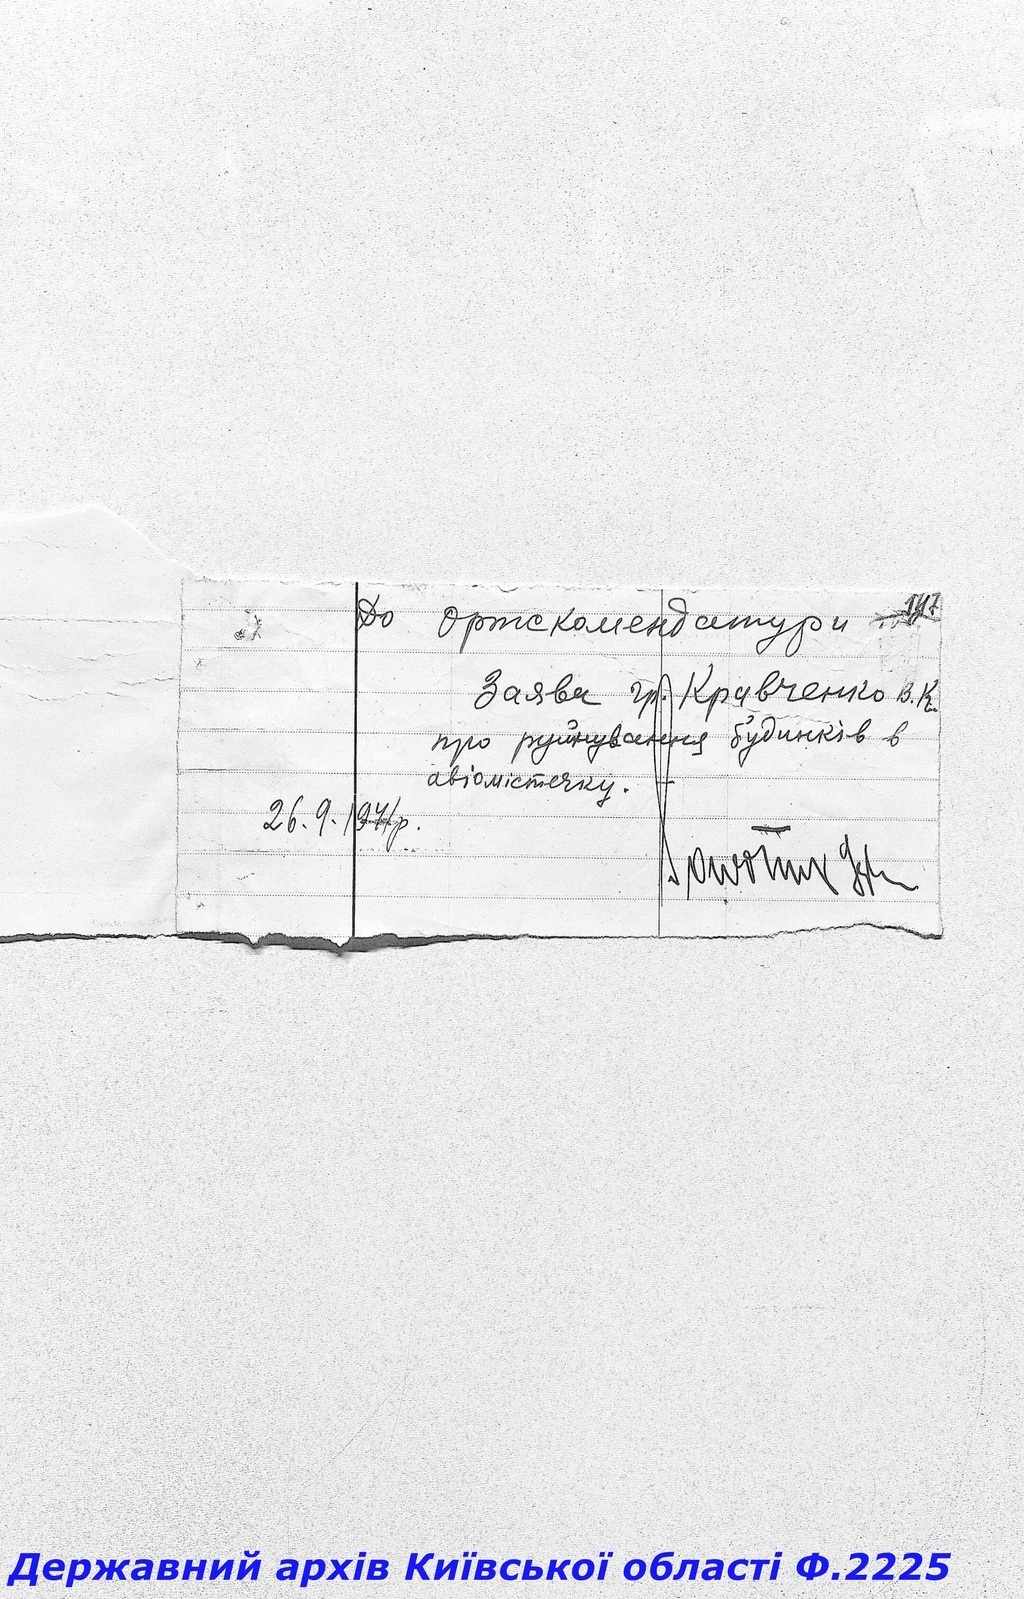 147
До Ортскомендатури
Заява гр. Кравченко В.К.
про руйнування будинків в
авіомістечку.
26.9.1941р.
Державний архів Київської області Ф.2225